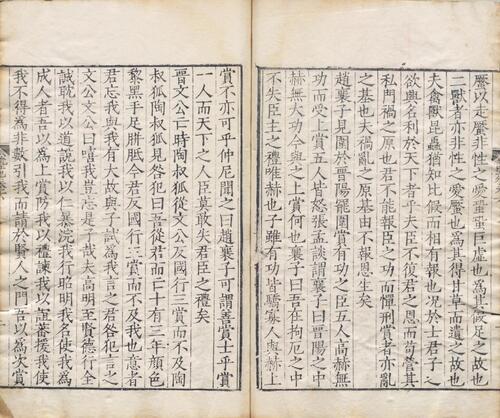 蟨以走蟨非性之愛蛩蛩巨虛也為其假足之故也
二獸者亦非性之愛蟨也為其得甘草而遺之故也
夫禽獸昆蟲猶知比假而相有報也況於士君子之
欲與名利於天下者乎夫臣不復君之恩而苟營其
私門禍之原也君不能報臣之功而憚刑賞者亦亂
之基也夫禍亂之原基由不報恩生矣
趙襄子見圍於晉陽罷圍賞有功之臣五人高赫無
功而受上賞五人皆怒張孟談謂襄子曰晉陽之中
赫無大功今與之上賞何也襄子曰吾在拘厄之中
不失臣主之禮唯赫也子雖有功皆驕寡人與赫上
賞不亦可乎仲尼聞之曰趙襄子可謂善賞士乎賞
一人而天下之人臣莫敢失君臣之禮矣
晉文公亡時陶叔狐從文公反國行三賞而不及陶
叔狐陶叔狐見咎犯曰吾從君而亡十有三年顏色
黎黑手足胼胝今君反國行三賞而不及我也意者
君忘我與我有大故與子試為我言之君咎犯言之
文公文公曰嘻我豈忘是子哉夫高明至賢德行全
誠耽我以道說我以仁暴浣我行昭明我名使我為
成人者吾以為上賞防我以禮諫我以誼蕃援我使
我不得為非數引我而請於賢人之門吾以為次賞